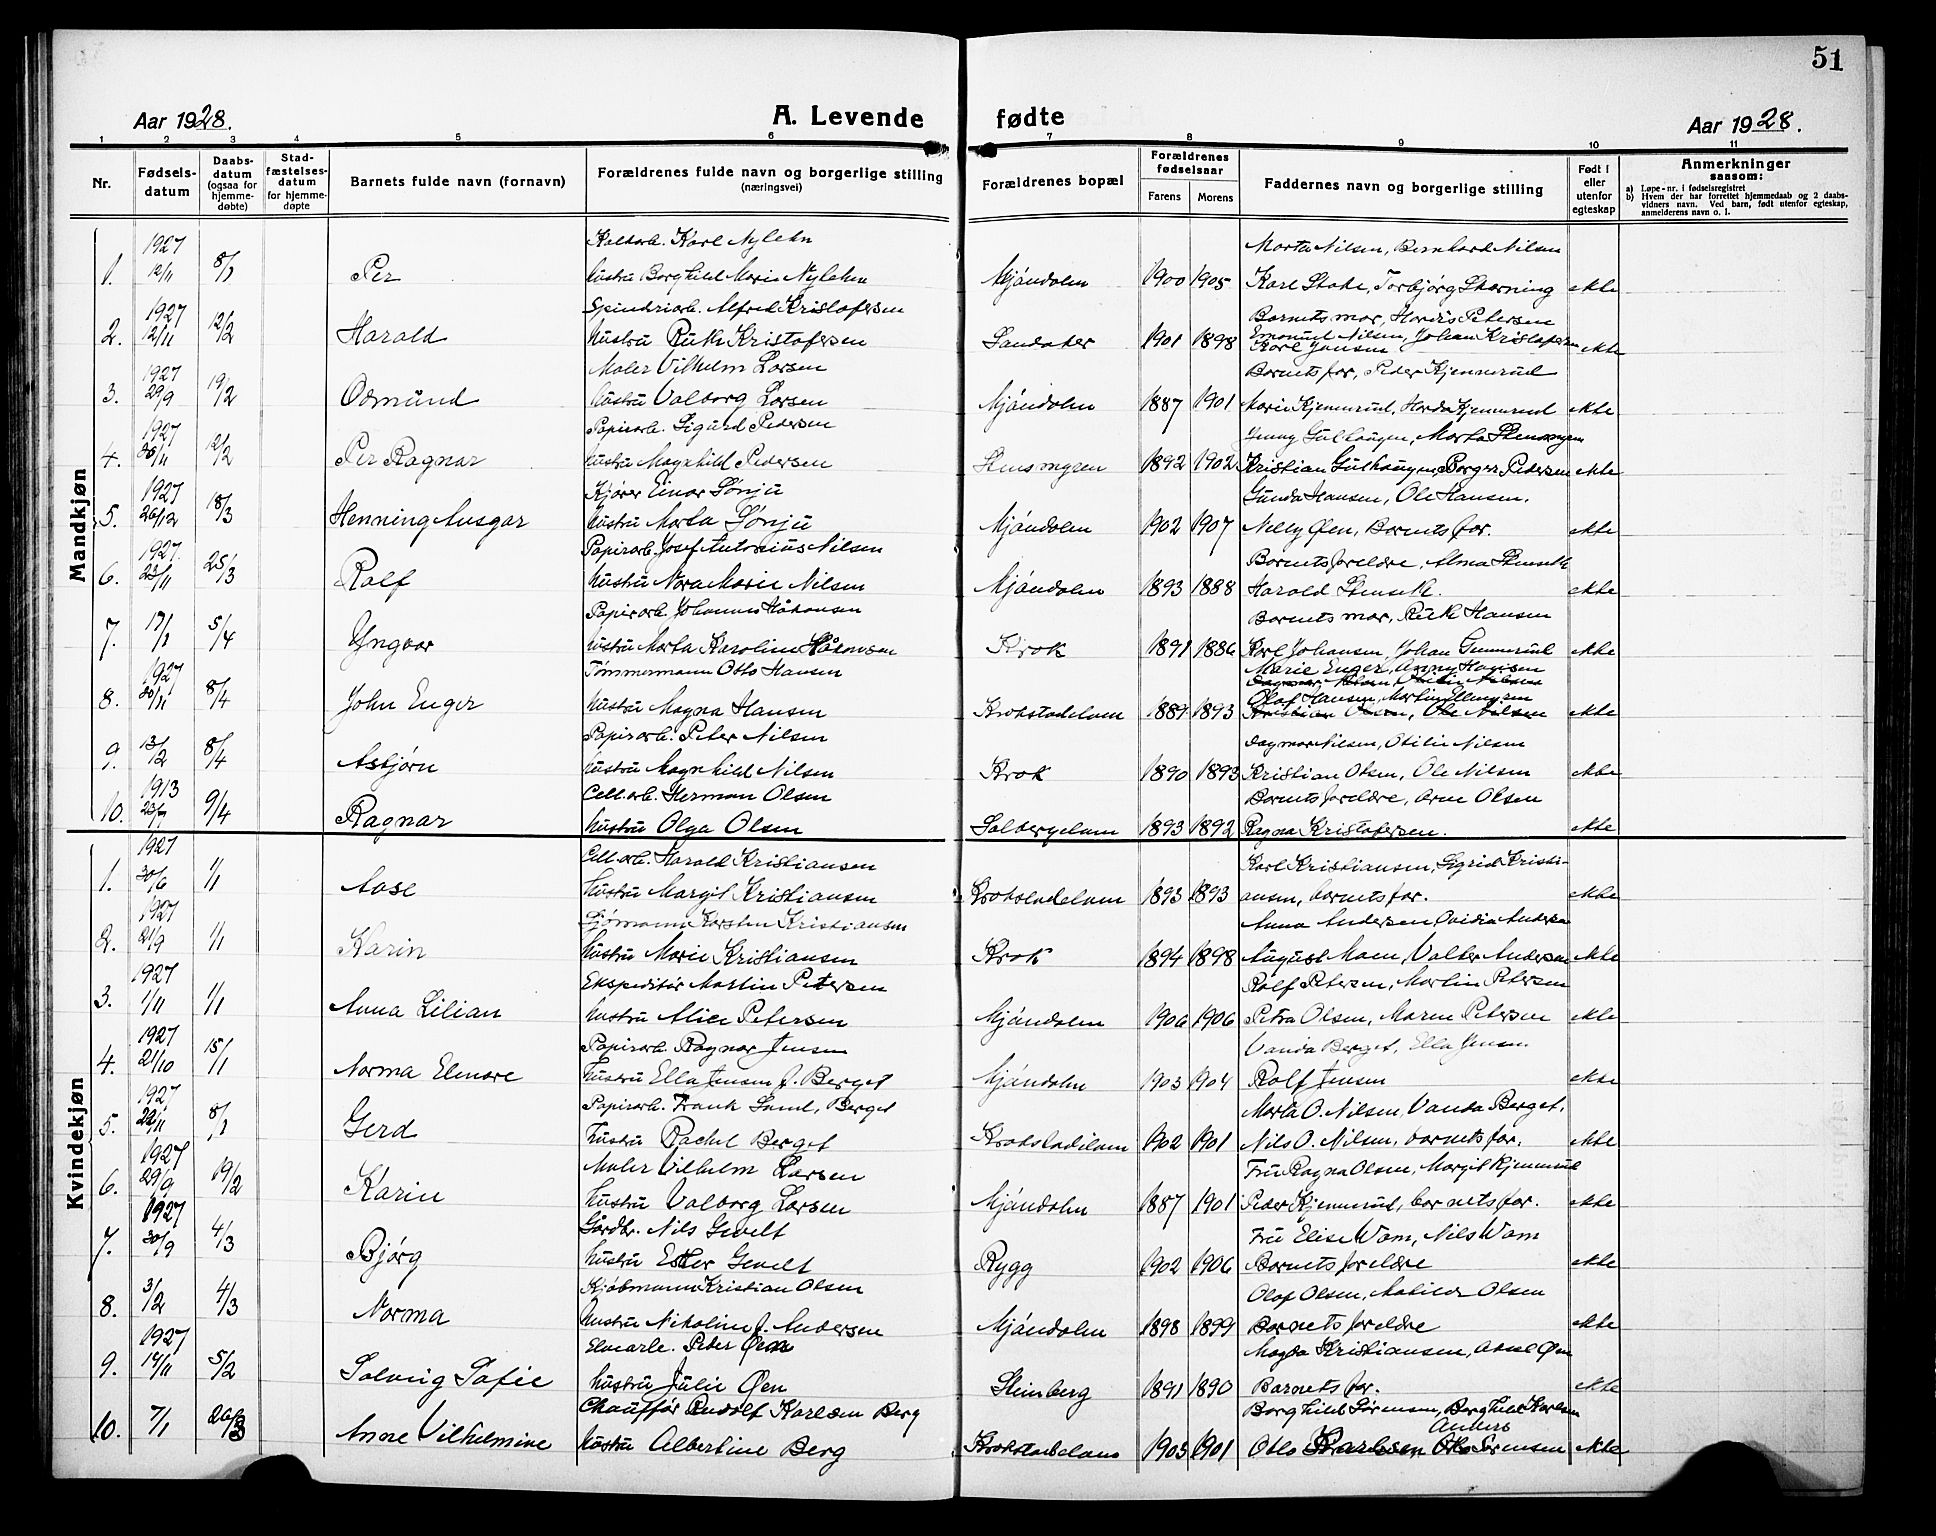 51
Aar 1928.
A. Levende fødte
Aar 1928.
1 2 3 4 5 6 7 8 9 10 11
Nr.
Fødsels-
datum
Daabs-
datum
(ogsaa for
hjemme-
døbte)
Stad-
fæstelses-
datum
for hjemme-
døpte
Barnets fulde navn (fornavn)
Forældrenes fulde navn og borgerlige stilling
(næringsvei)
Forældrenes bopæl
Forældrenes
fødselsaar
Farens
Morens
Faddernes navn og borgerlige stilling
Født i
eller
utenfor
egteskap
Anmerkninger
saasom:
a) Løpe-nr. i fødselsregistret
b) Hvem der har forrettet hjemmedaab og 2 daabs-
vidners navn. Ved barn, født utenfor egteskap,
anmelderens navn o. l.
Mandkjøn
1927 Karl Nylehn Marta Nilsen, Bernhard Nilsen
1. 12/11 8/1 Per hustru Borghild Marie Nylehn Mjöndalen 1900 1905 Karl Stake, Torbjörg Skorning ekte
1927 Spindriarb. Alfred Kristofersen Barnets mor, Hordis Petersen
2. 12/11 12/2 Harald hustru Ruth Kristofersen Sandaker 1901 1898 Emanuel Nilsen, Johan Kristofersen ekte
Karl Jansen
1927 Maler Vilhelm Larsen Barnets far, Peder Kjennerud
3. 29/9 19/2 Odmund hustru Valborg Larsen Mjöndalen 1887 1901 Marie Kjennerud, Horda Kjennerud ekte
1927 Papirarb. Sigurd Pedersen Jenny Gulhaugen, Marta Stensmyren
4. 11 12/2 Per Ragnar hustru Magnhild Pedersen Stensmyren 1892 1902 Kristian Gulhaugen, Borger Pedersen ekte
1927 Kjører Einar Sönju Gunda Hansen, Ole Hansen.
5. 26/12 18/3 Henning Ansgar hustru Marta Sönju Mjöndalen 1902 1907 Nelly Øen, Barnets far. ekte
1927. Papirarb. Josef Antonius Nilsen Barnets foreldre, Alma Stenseth
6. 23/11 25/3 Rolf hustru Nora Marie Nilsen Mjöndalen 1893 1888 Harald Stenseth. ekte
Papirarb. Johannes Håkonsen Barnets mor, Ruth Hansen
7. 17/1 5/4 Yngvar hustru Marta Karoline Håkonsen Krok 1891 1886 Karl Johansen, Johan Gunnerud ekte
1927 Tømmermann Otto Hansen Marie Enger, Anny Hansen
Dagmar Nilsen, Otilie Nilsen
8. 30/11 8/4 John Enger hustru Magna Hansen Krokstadelven 1889 1893 Olaf Hansen, Martin Ellingsen ekte
Kristian Olsen, Ole Nilsen
Papirarb. Peter Nilsen Dagmar Nilsen, Otilie Nilsen
9. 13/2 8/4 Asbjørn hustru Magnhild Nilsen Krok 1890 1893 Kristian Olsen, Ole Nilsen ekte
1913 Cell.arb. Herman Olsen Barnets foreldre, Arne Olsen
10. 23/7 9/4 Ragnar hustru Olga Olsen Solbergelven 1893 1892 Ragna Kristofersen. ekte
Kvindekjøn
1927 Cell.arb. Harald Kristiansen Karl Kristiansen, Sigrid Kristi-
1. 30/6 1/1 Aase hustru Margit Kristiansen Krokstadelven 1893 1893 ansen, barnets far. ekte
1927 Sjømann Karsten Kristiansen Anna Andersen Ovidia Andersen
2. 21/9 1/1 Karin hustru Marie Kristiansen Krok 1894 1898 August Moen, Valter Andersen ekte
1927 Ekspeditör Martin Petersen Rolf Petersen, Martin Petersen
3. 1/11 1/1 Anna Lilian hustru Alice Petersen Mjöndalen 1906 1906 Petra Olsen, Maren Petersen ekte
1927 Papirarb. Ragnar Jensen Vanda Berget, Ella Jensen
4. 21/10 15/1 Norma Elenore hustru Ella Jensen f. Berget Mjöndalen 1903 1904 Rolf Jensen ekte
1927 Papirarb. Frank Saml. Berget Marta O. Nilsen, Vanda Berget,
5. 22/11 8/1 Gerd hustru Rachel Berget Krokstadelven 1902 1901 Nils O. Nilsen, barnets far. ekte
1927 Maler Vilhelm Larsen Fru Ragna Olsen, Margit Kjennerud
6. 29/9 19/2 Karin hustru Valborg Larsen Mjöndalen 1887 1901 Peder Kjennerud, barnets far. ekte
1927 Gårdbr. Nils Gevelt Fru Elise Wam, Nils Wam
7. 30/9 4/3 Bjørg hustru Ester Gevelt Rygg 1902 1906 Barnets foreldre ekte
Kjøbmann Kristian Olsen Olaf Olsen, Matilda Olsen
8. 3/2 4/3 Norma hustru Nikoline f. Andersen Mjöndalen 1898 1899 Barnets foreldre ekte
1927 Elvearb. Peter Øen Magda Kristiansen, Øen
9. 14/11 5/2 Solveig Sofie hustru Julie Øen Steinberg 1891 1890 Barnets far. ekte
Chauffør Rudolf Karlsen Berg Borghild Sørensen, Borghild Karlsen
Anders
10. 7/1 26/3 Anne Vilhelmine hustru Albertine Berg Krokstadelven 1905 1901 Otto Karlsen, Sørensen ekte